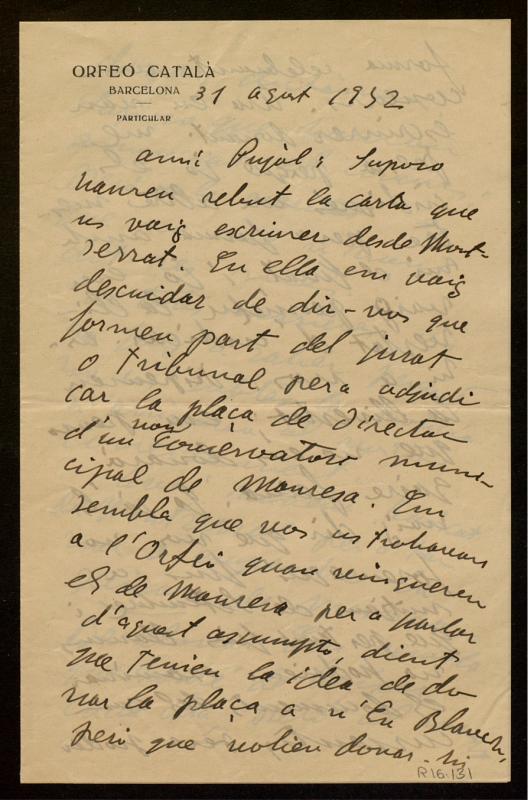 ORFEÓ CATALÀ
BARCELONA
PARTICULAR
31 agost 1932
Amic Pujol: Suposo
haureu rebut la carta que
us vaig escriurer desde Mont-
serrat. En ella em vaig
descuidar de dir-vos que
formeu part del jurat
o tribunal per a adjudi
car la plaça de Director
d'un nou Conservatori muni-
cipal de Manresa. Em
sembla que vos us trobaveu
a l'Orfeó quan vingueren
els de Manresa per a parlar
d'aquest assumpto, dient
que tenien la idea de do
nar la plaça a n'En Blanch,
però que volien donar-hi
R16.131